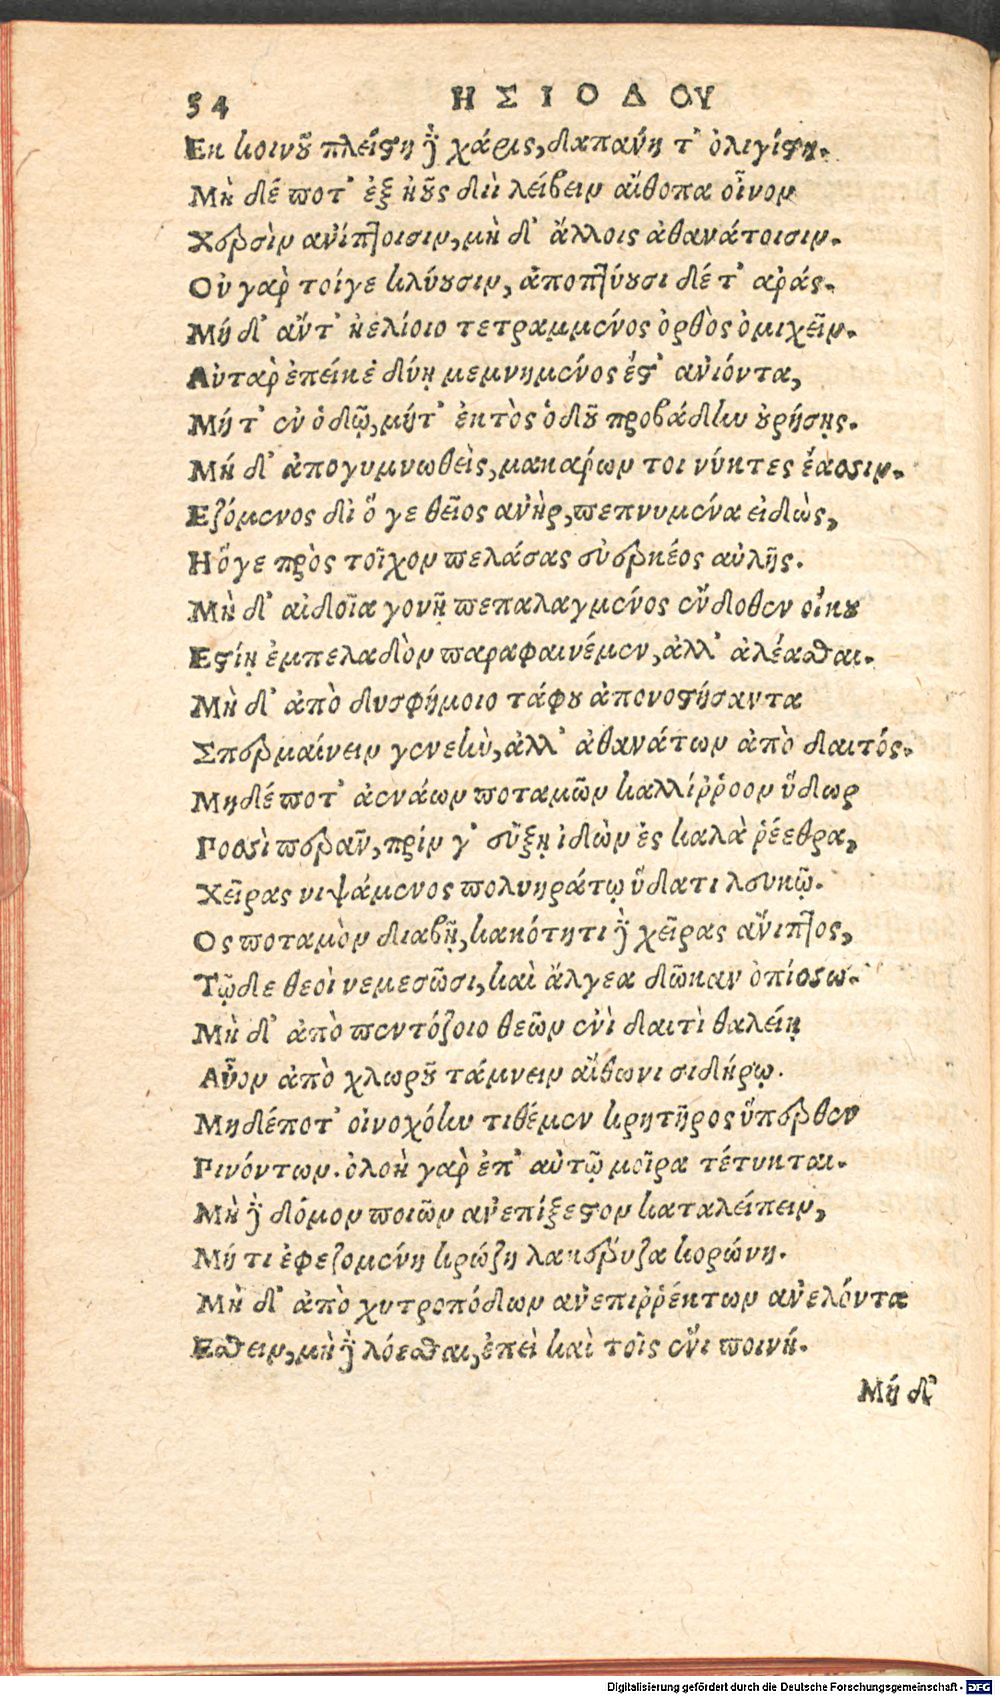 54 ΗΣΙΟΔΟΥ
Εκ κοινοῦ πλείστη δὲ χάρις, δαπάνη τ' ὀλιγίστη.
Μὴ δέ ποτ' ἐξ ἠοῦς διὶ λείβειν αἴθοπα οἶνον
Χερσὶν ἀνίπτοισιν, μὴ δ' ἄλλοις ἀθανάτοισιν.
Οὐ γὰρ τοίγε κλύουσιν, ἀποπτύουσι δέ τ' ἀράς.
Μή δ' ἄντ' ἠελίοιο τετραμμένος ὀρθὸς ὀμιχεῖν.
Αὐτὰρ ἐπείκε δύῃ μεμνημένος ἔστ' ἀνιόντα,
Μήτ' ἐν ὁδῷ, μήτ' ἐκτὸς ὁδοῦ προβάδην οὐρήσῃς.
Μή δ' ἀπογυμνωθεὶς, μακάρων τοι νύκτες ἔασσιν.
Εζόμενος δ' ὅ γε θεῖος ἀνὴρ, πεπνυμένα εἰδὼς,
Η ὅγε πρὸς τοῖχον πελάσας εὐερκέος αὐλῆς.
Μὴ δ' αἰδοῖα γονῇ πεπαλαγμένος ἔνδοθεν οἴκου
Εστίῃ ἐμπελαδὸν παραφαινέμεν, ἀλλ' ἀλέασθαι.
Μὴ δ' ἀπὸ δυσφήμοιο τάφου ἀπονοστήσαντα
Σπερμαίνειν γενεὴν, ἀλλ' ἀθανάτων ἀπὸ δαιτός.
Μηδέ ποτ' ἀενάων ποταμῶν καλλίῤῥοον ὕδωρ
Ποσσὶ περᾶν, πρίν γ' εὔξῃ ἰδὼν ἐς καλὰ ῥέεθρα,
Χεῖρας νιψάμενος πολυηράτῳ ὕδατι λευκῷ.
Ος ποταμὸν διαβῇ, κακότητι δὲ χεῖρας ἄνιπτος,
Τῷδε θεοὶ νεμεσῶσι, καὶ ἄλγεα δῶκαν ὀπίσσω.
Μὴ δ' ἀπὸ πεντόζοιο θεῶν ἐνὶ δαιτὶ θαλείῃ
Αὖον ἀπὸ χλωροῦ τάμνειν αἴθωνι σιδήρῳ.
Μηδέποτ' οἰνοχόην τιθέμεν κρητῆρος ὕπερθεν
Πινόντων. ὀλοὴ γὰρ ἐπ' αὐτῷ μοῖρα τέτυκται.
Μὴ δὲ δόμον ποιῶν ἀνεπίξεστον καταλείπειν,
Μή τι ἐφεζομένη κρώζη λακέρυζα κορώνη.
Μὴ δ' ἀπὸ χυτροπόδων ἀνεπιῤῥέκτων ἀνελόντα
Εσθειν, μὴ δὲ λόεσθαι, ἐπεὶ καὶ τοῖς ἔνι ποινή.
Μή δ'
Digitalisierung gefördert durch die Deutsche Forschungsgemeinschaft - DFG